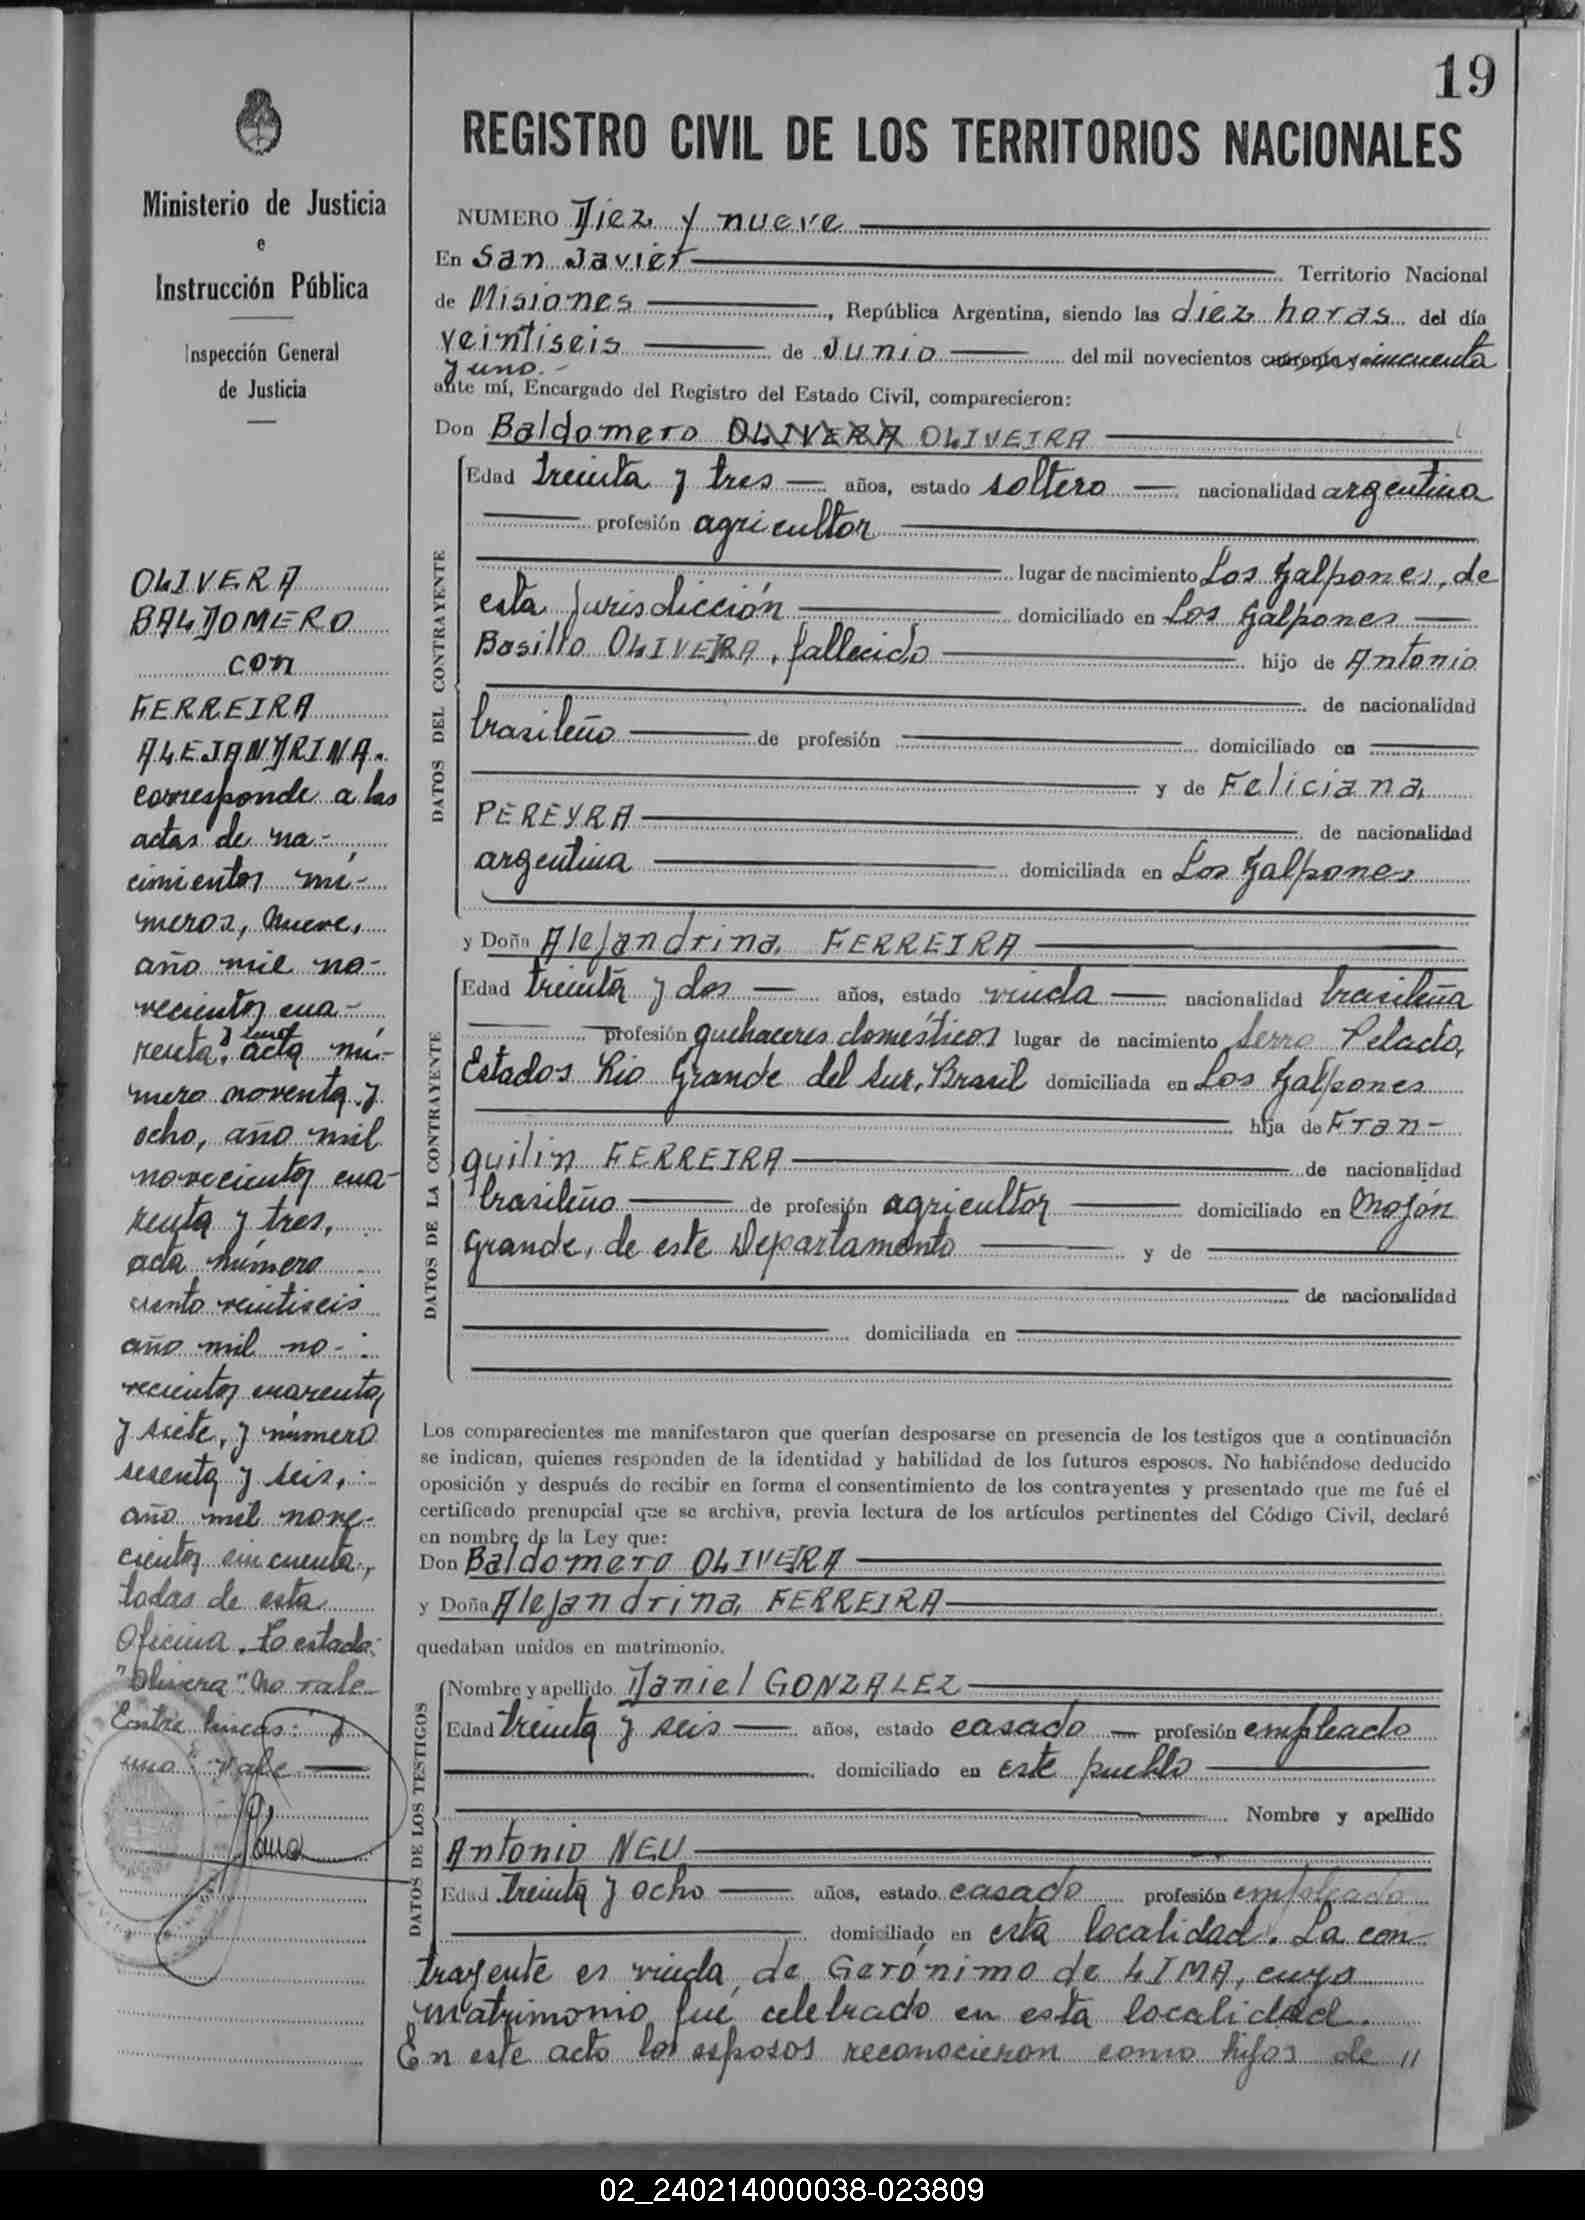 19
REGISTRO CIVIL DE LOS TERRITORIOS NACIONALES
Ministerio de Justicia
e
Instrucción Pública
Inspección General
de Justicia
OLIVERA
BALDOMERO
con
FERREIRA
ALEJANDRINA.
corresponde a las
actas de na-
cimientos nú-
meros, Nueve,
año mil no-
vecientos cua-
renta y uno, acta nú-
mero noventa y
ocho, año mil
novecientos cua-
renta y tres,
acta número
ciento veintiseis
año mil no-
vecientos cuarenta
y siete, y número
sesenta y seis,
año mil nove-
cientos cincuenta,
todas de esta
Oficina. Lo estado:
"Olivera" No vale
Entre lineas: "y
uno" vale
NUMERO Diez y nueve
En San Javier Territorio Nacional
de Misiones, República Argentina, siendo las diez horas del día
veintiseis de Junio del mil novecientos cuarenta y cincuenta
y uno.-
ante mí, Encargado del Registro del Estado Civil, comparecieron:
Don Baldomero OLIVERA OLIVEIRA
DATOS DEL CONTRAYENTE
Edad treinta y tres años, estado soltero nacionalidad argentina
profesión agricultor
lugar de nacimiento Los Galpones, de
esta jurisdicción domiciliado en Los Galpones
Basilio OLIVEIRA, fallecido hijo de Antonio
de nacionalidad
brasileño de profesión domiciliado en
y de Feliciana
PEREYRA de nacionalidad
argentina domiciliada en Los Galpones
y Doña Alejandrina FERREIRA
DATOS DE LA CONTRAYENTE
Edad treinta y dos años, estado viuda nacionalidad brasileña
profesión quehaceres domésticos lugar de nacimiento Serro Pelado,
Estados Rio Grande del Sur, Brasil domiciliada en Los Galpones
hija de Fran-
quilin FERREIRA de nacionalidad
brasileño de profesión agricultor domiciliado en Mojón
Grande, de este Departamento y de
de nacionalidad
domiciliada en
Los comparecientes me manifestaron que querían desposarse en presencia de los testigos que a continuación
se indican, quienes responden de la identidad y habilidad de los futuros esposos. No habiéndose deducido
oposición y después de recibir en forma el consentimiento de los contrayentes y presentado que me fué el
certificado prenupcial que se archiva, previa lectura de los artículos pertinentes del Código Civil, declaré
en nombre de la Ley que:
Don Baldomero OLIVEIRA
y Doña Alejandrina FERREIRA
quedaban unidos en matrimonio.
DATOS DE LOS TESTIGOS
Nombre y apellido Daniel GONZALEZ
Edad treinta y seis años, estado casado profesión empleado
domiciliado en este pueblo
Nombre y apellido
Antonio NEU
Edad treinta y ocho años, estado casado profesión empleado
domiciliado en esta localidad. La con-
trayente es viuda de Gerónimo de LIMA, cuyo
matrimonio fué celebrado en esta localidad.
En este acto los esposos reconocieron como hijos de "
02_240214000038-023809